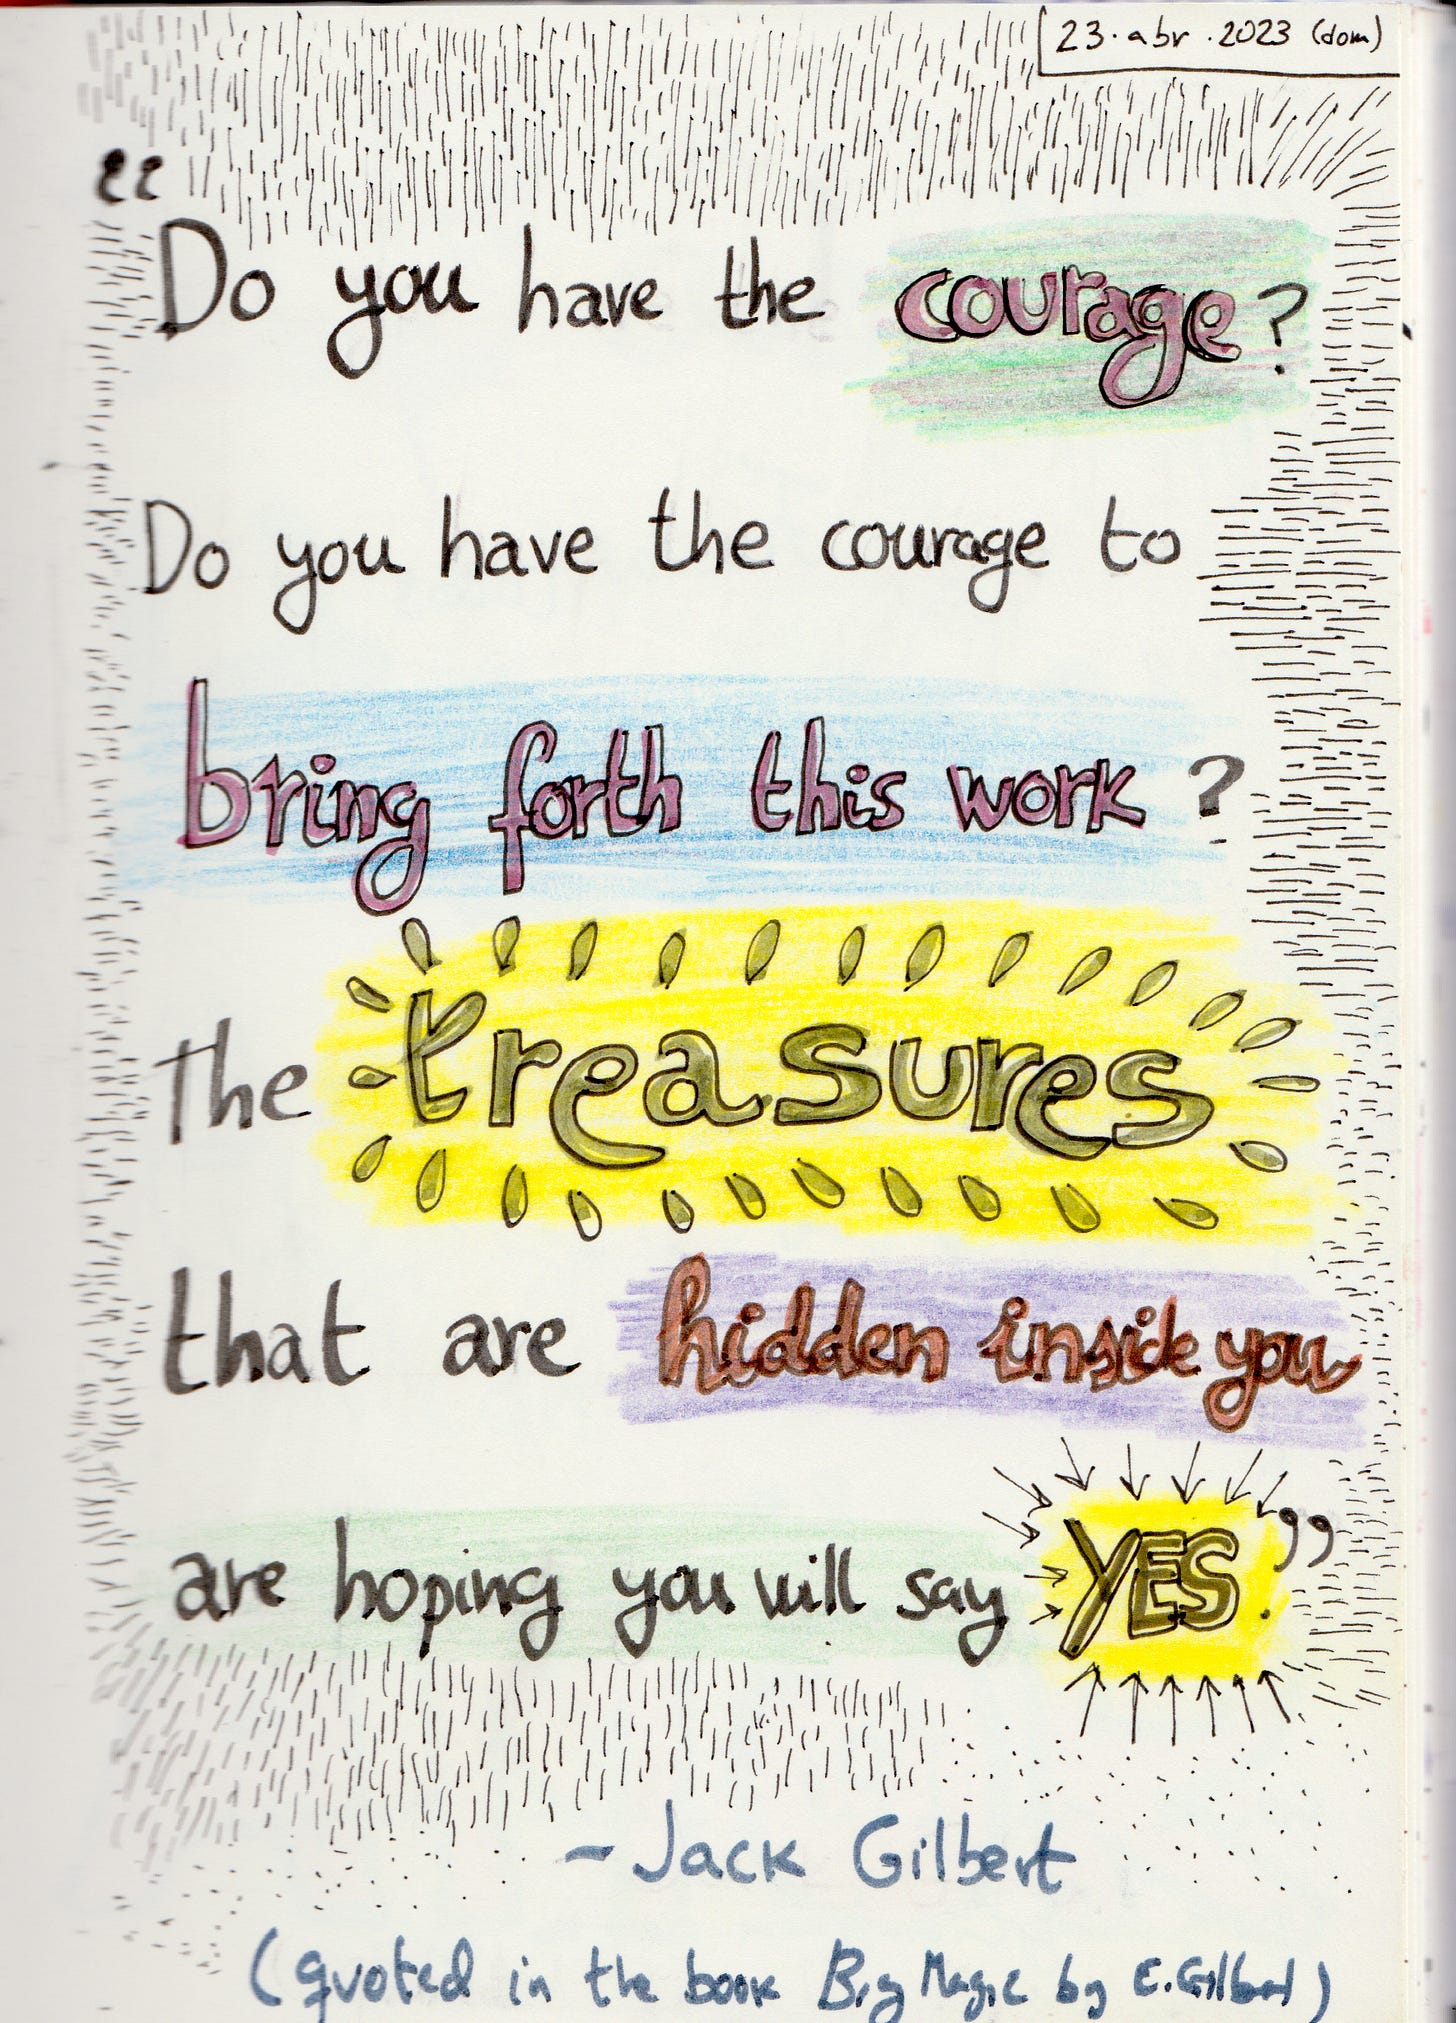 23.abr.2023 (dom)
“
Do you have the courage?
Do you have the courage to
bring forth this work?
The treasures
that are hidden inside you
are hoping you will say YES.”
- Jack Gilbert
(quoted in the book Big Magic by E. Gilbert)